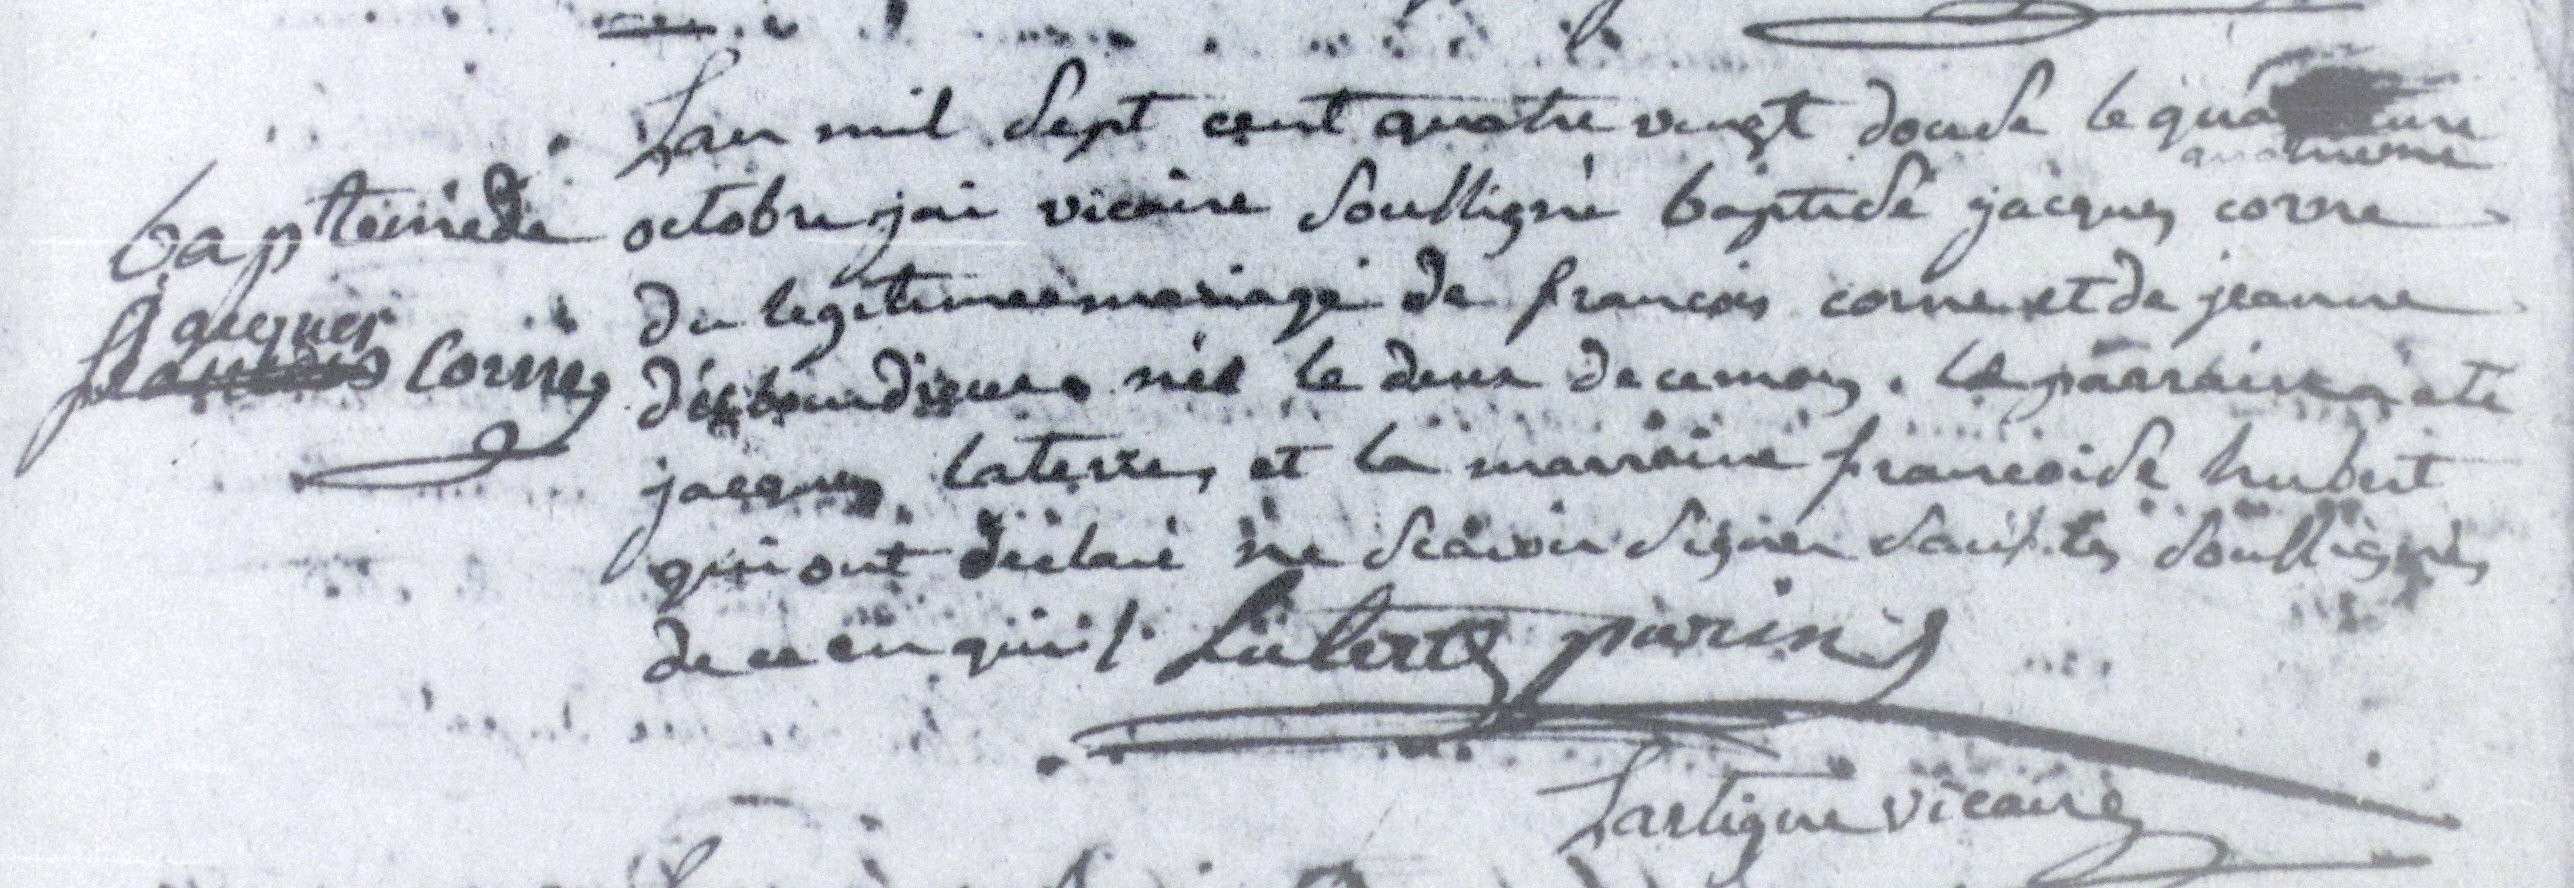 Lan mil sept cent quatre vingt douse le
quatrieme
baptemede
jacques
Corne
octobre jai vicaire soussigné baptisé jacques corne
du legitime mariage de francois corne et de jeanne
née le deux de ce mois. le parrain a été
jacques laterre, et la marraine francoise hubert
qui ont déclaré ne scavoir signer sauf les soussignés
de ce enquis /. Laterre parin
Lartigue vicaire